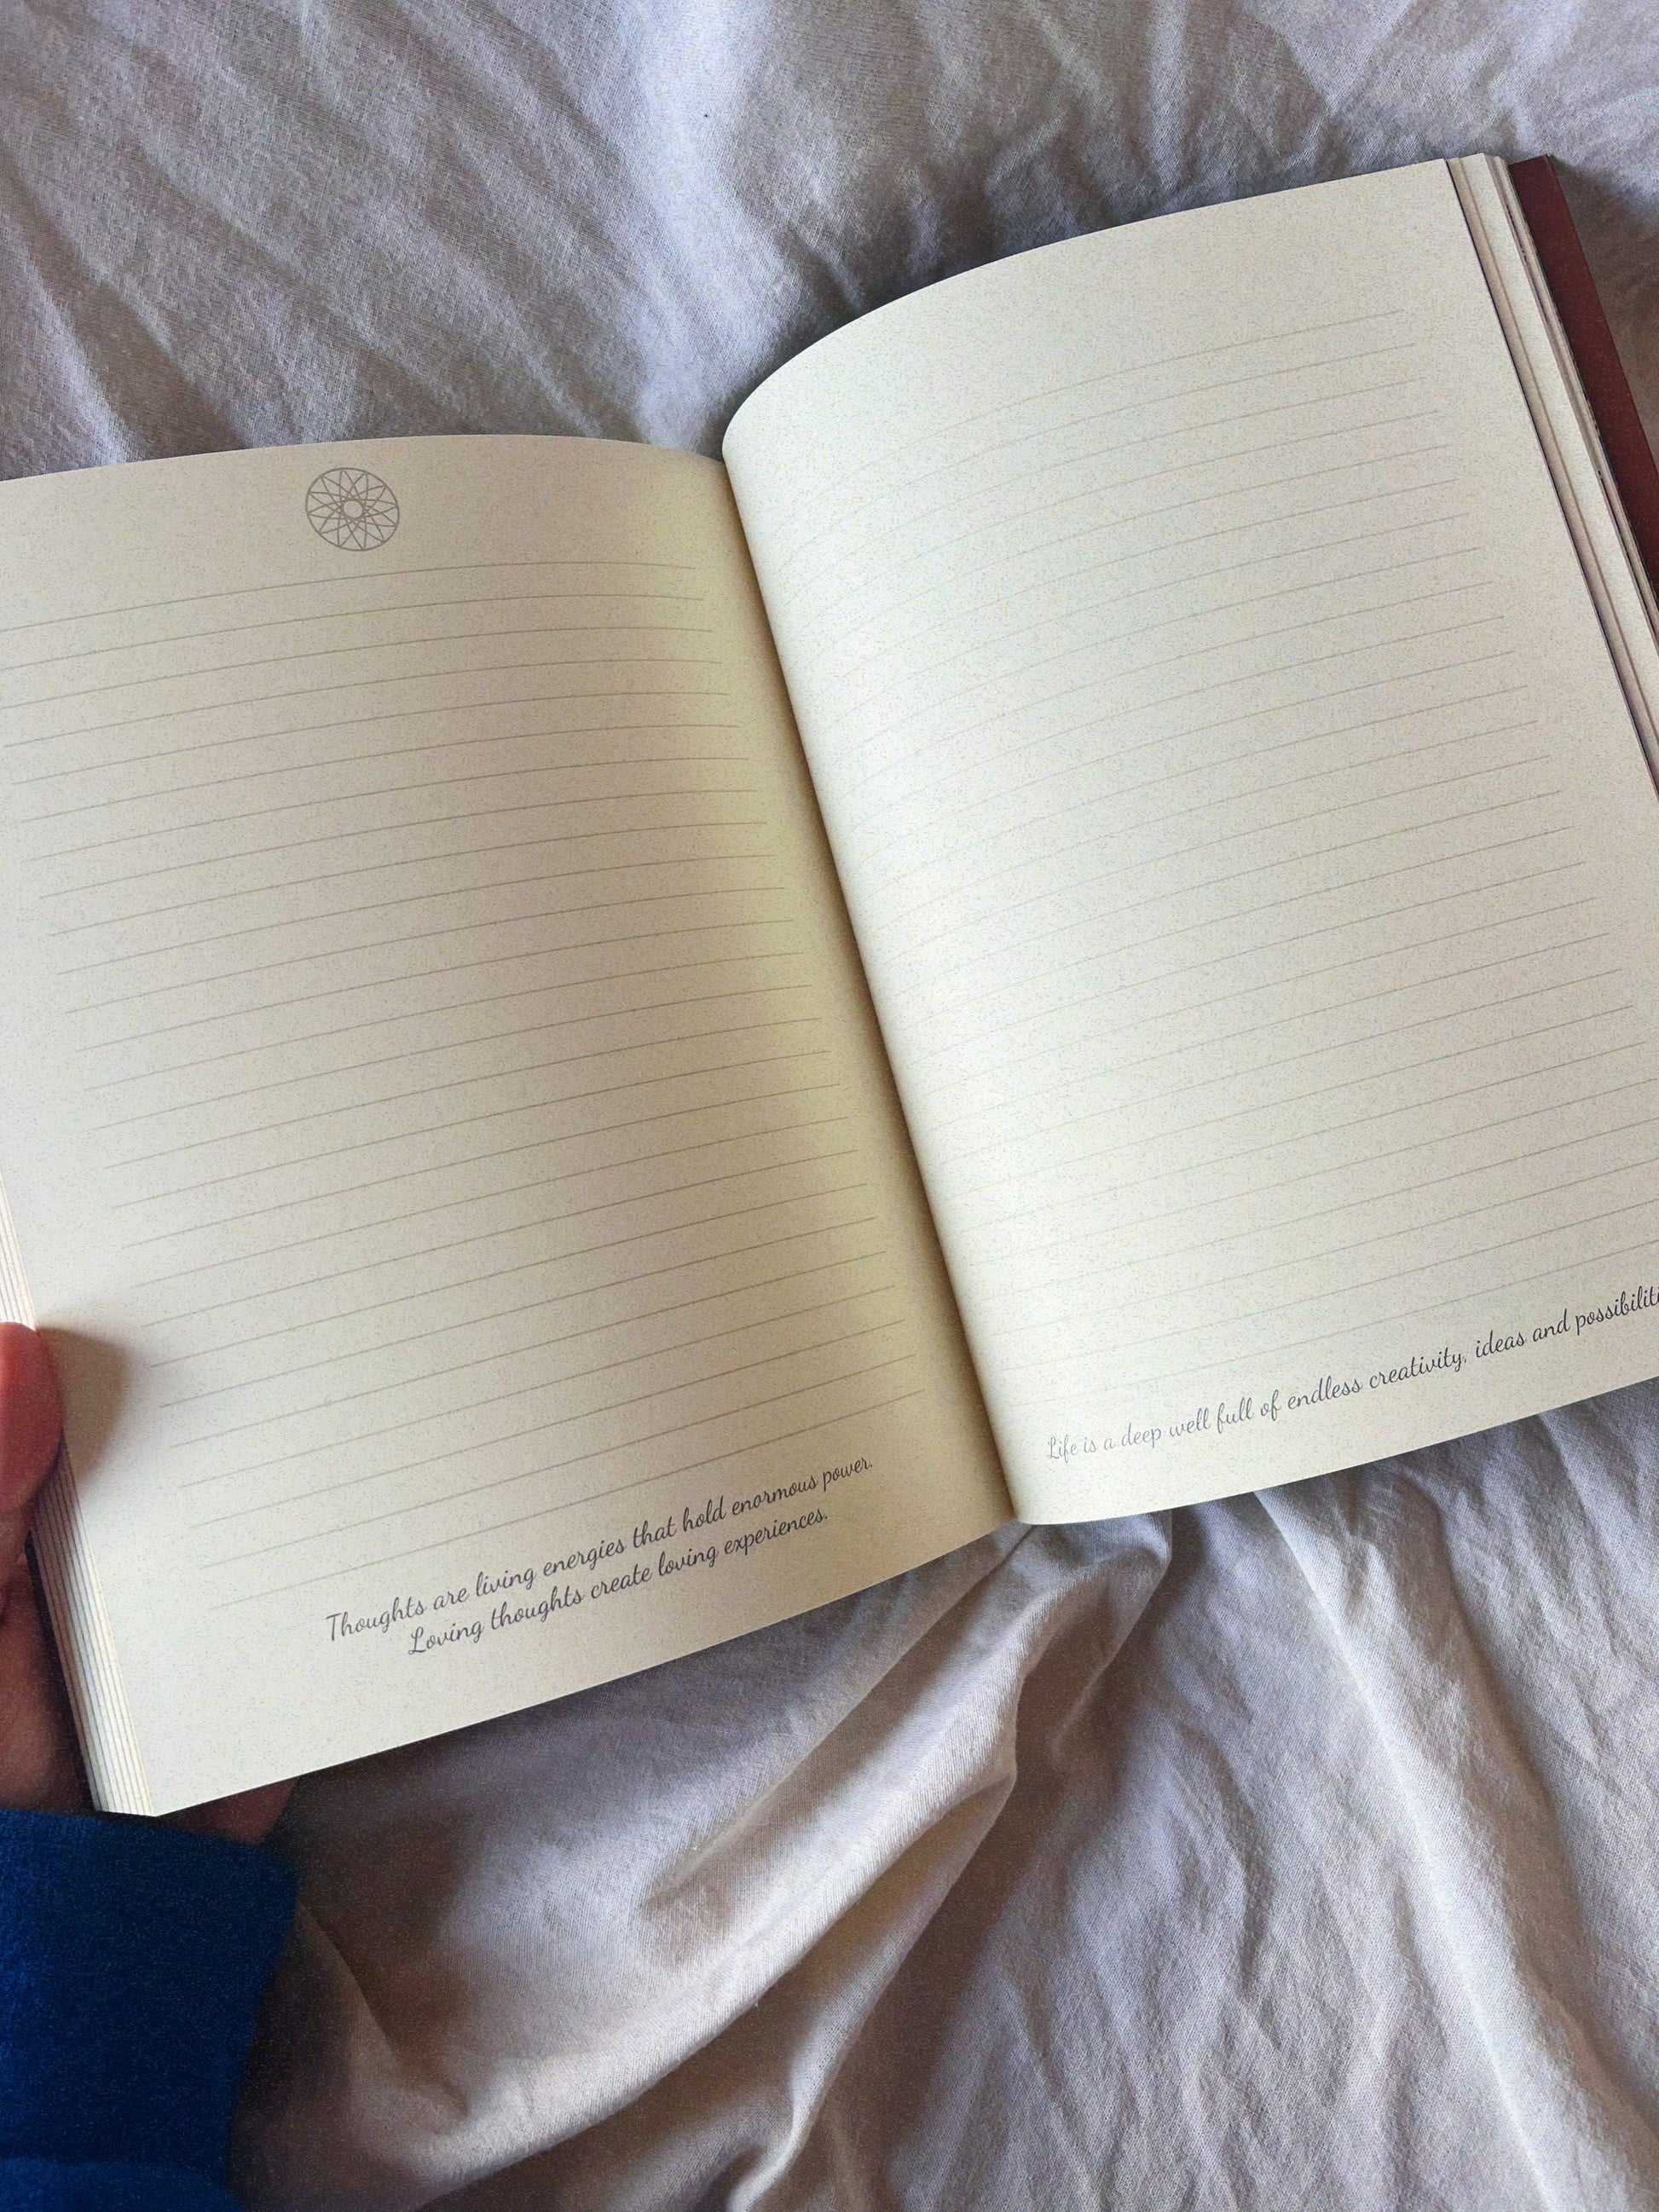 Thoughts are living energies that hold enormous power.
Loving thoughts create loving experiences.
Life is a deep well full of endless creativity, ideas and